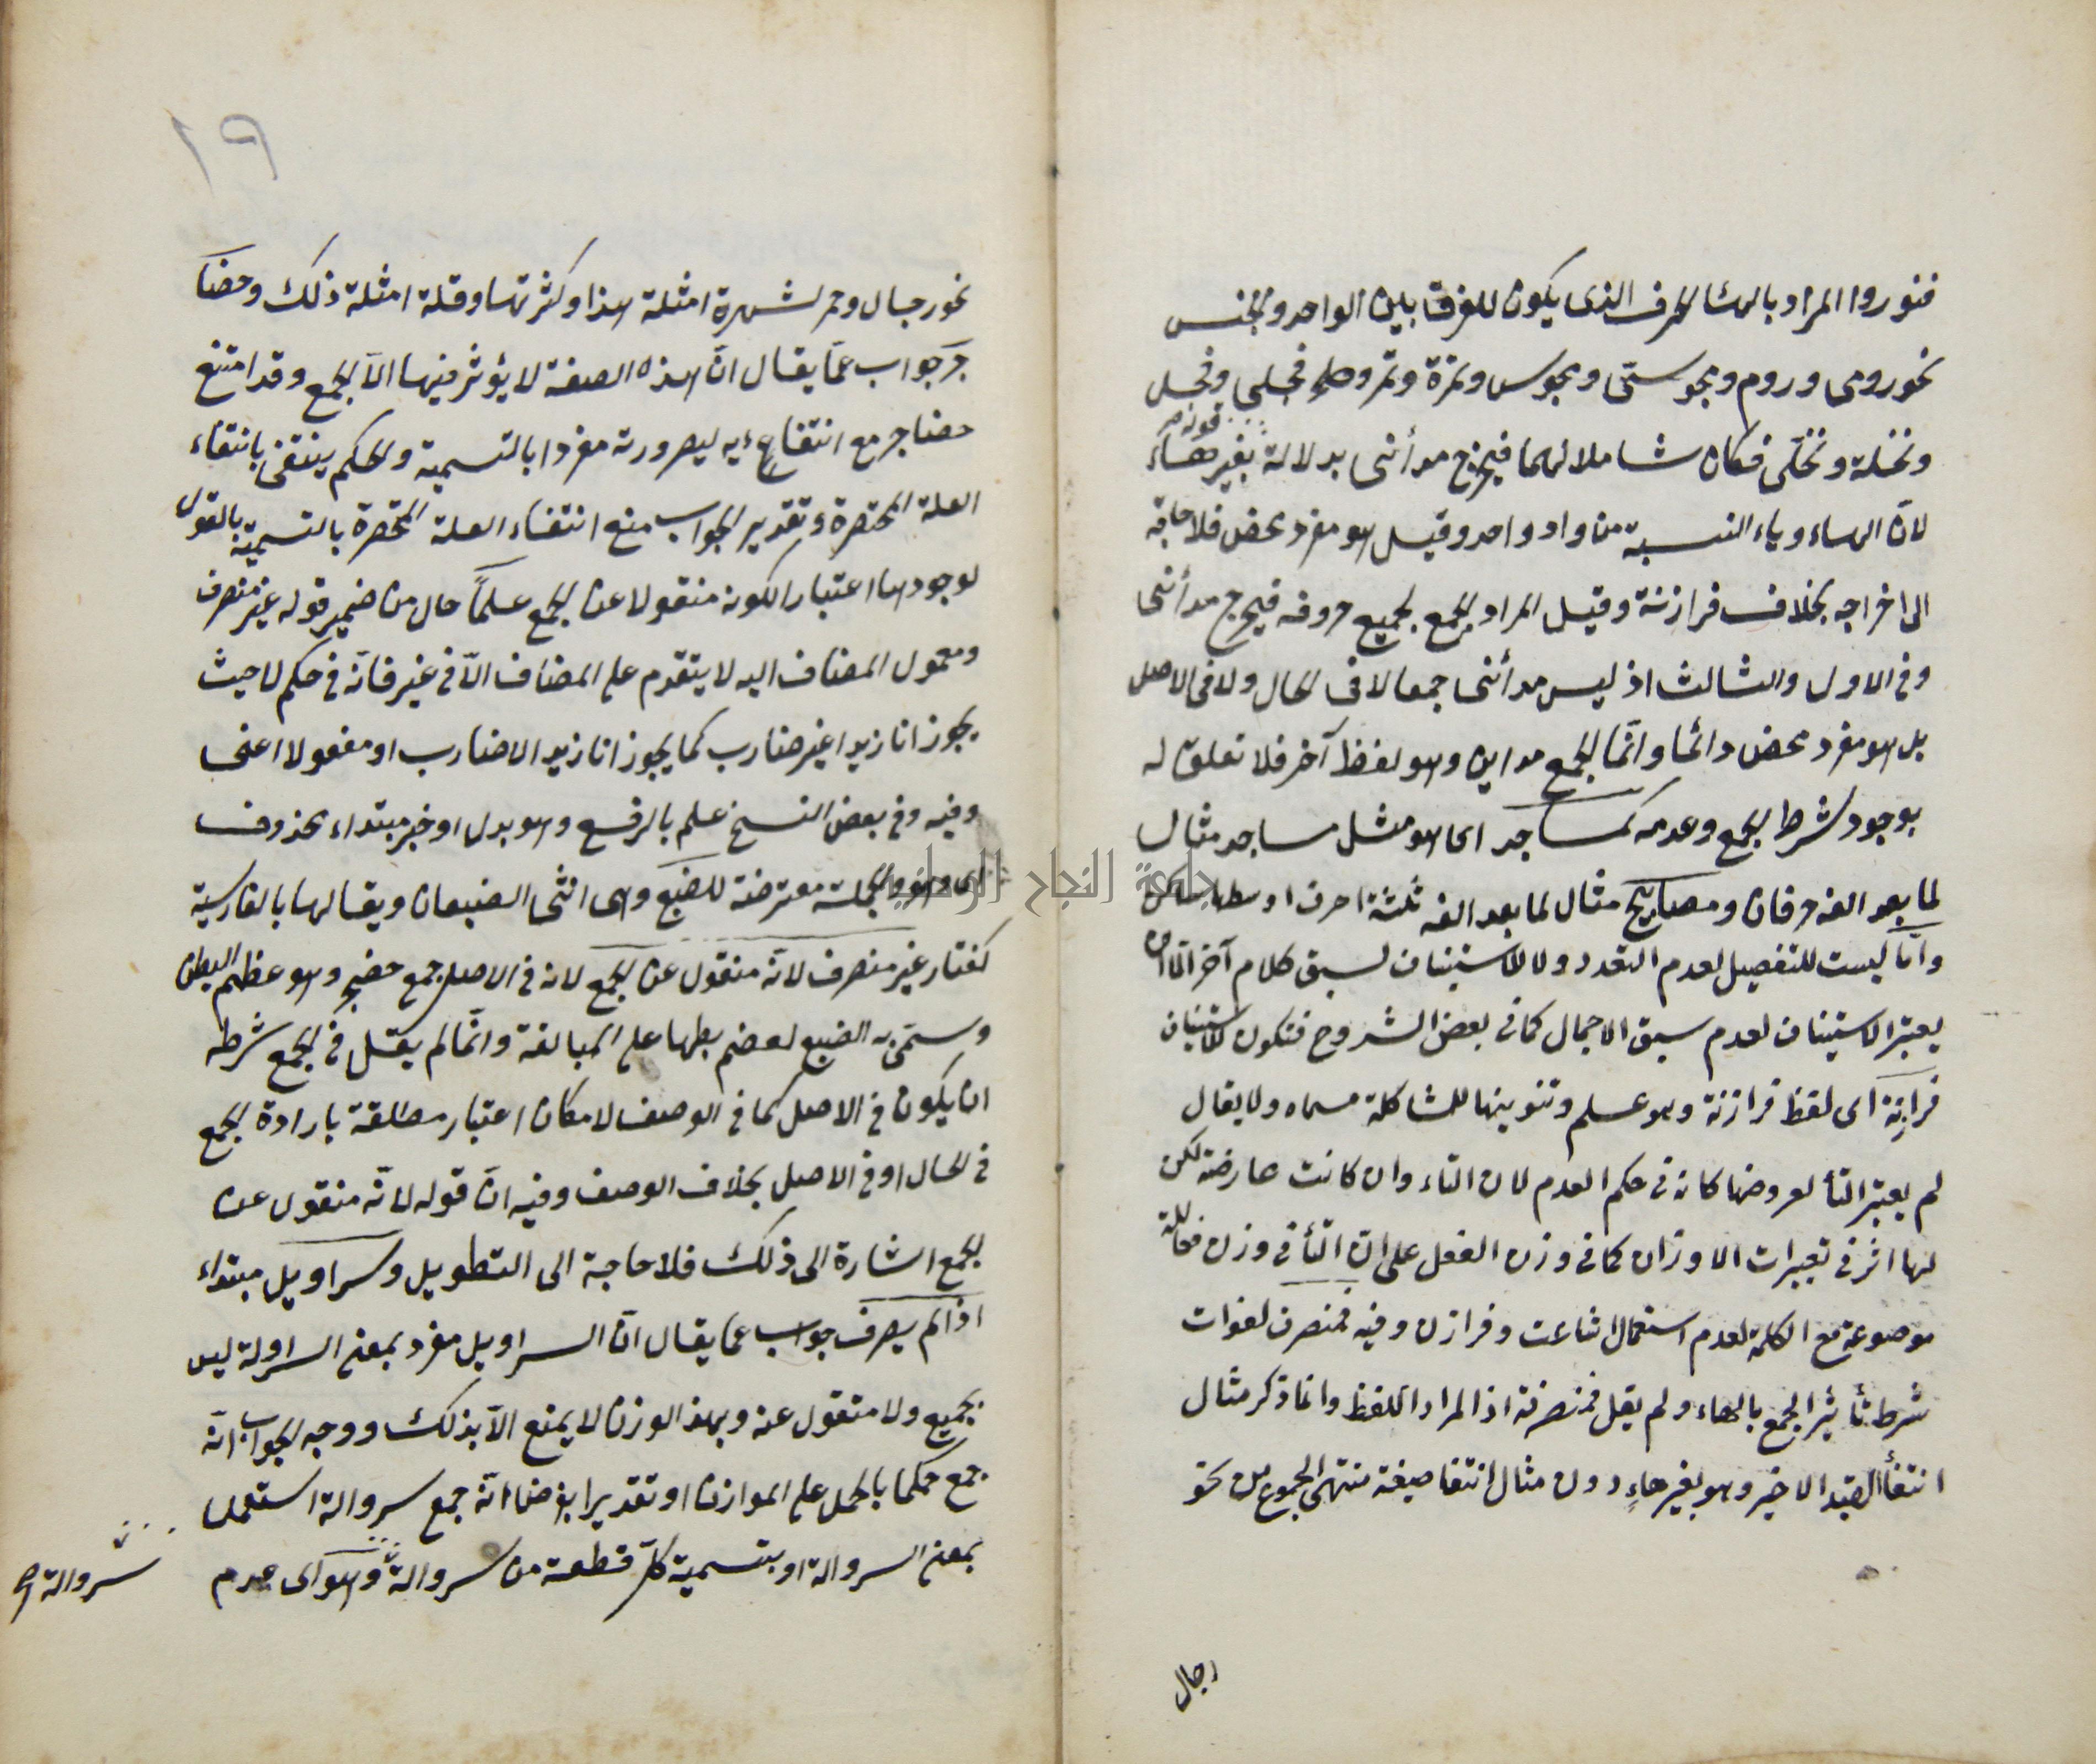 فنوروا المراد بالهاء الحرف الذى يكون للفرق بين الواحد والجنس
نحو رومى وروم ومجوسىّ ومجوس وتمرة وتمر وفجلى وفجل
ونخلة ونخلى فكان شاملا لهما فيخرج مدائنى بدلالة قوله بغير هاء
لان الهاء وياء النسبة من واد واحد وقيل هو مفرد محض فلا حاجة
الى اخراجه بخلاف فرازنة وقيل المراد الجمع بجميع حروفه فيخرج مدائنى
وفى الاول والثالث اذ ليس مدائنى جمعا لا فى الحال ولا فى الاصل
بل هو مفرد محض دائما وانّما الجمع مداين وهو لفظ آخر فلا تعلق له
بوجود شرط الجمع وعدمه كمساجد اى هو مثل مساجد مثال
لما بعد الفه حرفان ومصابيح مثال لما بعد الفه ثلثة احرف اوسطها ساكن
وامّا ليست للتفصيل لعدم التعدد ولا للاستيناف لسبق كلام آخر الّا ان
يعتبر الاستيناف لعدم سبق الاجمال كما فى بعض الشروح فتكون للاستيناف
فرازنة اى لفظ فرازنة وهو علم وتنوينها للمشاكلة مسماه ولا يقال
لم يعتبر التأ لعروضها كانه فى حكم العدم لان التاء وان كانت عارضة لكن
لها اثر فى تغييرات الاوزان كما فى وزن الفعل على ان التأ فى وزن فعاللة
موضوعة مع الكلمة لعدم استعمال اشاعث وفرازن وفيه فمنصرف لفوات
شرط تأثير الجمع بالهاء ولم يقل فمنصرفة اذ المراد اللفظ وانما ذكر مثال
انتفأ القيد الاخير وهو بغير هاءٍ دون مثال انتفا صيغة منتهى الجموع من نحو
رجال
١٩
نحو رجال وحمر لشهرة امثلة هذا وكثرتها وقلة امثلة ذلك وحضا
جر جواب عمّا يقال انّ هذه الصفة لا يؤثر فيها الّا الجمع وقد امتنع
حضاجر مع انتفائه لصيرورته مفردا بالتسمية والحكم ينتفى بانتفاء
العلة المختصرة وتقدير الجواب منع انتفاء العلة المختصرة بالتسمية بالقول
لوجودها اعتبارا لكونه منقولا عن الجمع علماً حال من ضمير قوله غير منصرف
ومعمول المضاف اليه لا يتقدم على المضاف الّا فى غير فانّه فى حكم لا حيث
يجوز انا زيدا غير ضارب كما يجوز انا زيدا لا ضارب او مفعولا اعنى
وفيه وفى بعض النسخ علم بالرفع وهو بدل او خبر مبتداء محذوف
اى وهو والجملة معترضة للضبع وهى انثى الضبعان ويقال لها بالفارسية
كفتار غير منصرف لانّه منقول عن الجمع لانه فى الاصل جمع حضجر وهو عظيم البطن
وسمّى به الضبع لعضم بطها على المبالغة وانّما لم يقل فى الجمع شرطه
ان يكون فى الاصل كما فى الوصف لامكان اعتبار مطلقة بارادة الجمع
فى الحال او فى الاصل بخلاف الوصف وفيه انّ قوله لانّه منقول عن
الجمع اشارة الى ذلك فلا حاجة الى التطويل وسراويل مبتداء
اذا لم يصرف جواب عما يقال انّ السراويل مفرد بمعنى السراولة ليس
بجميع ولا منقول عنه وبهذا الوزن لا يمنع الّا بذلك ووجه الجواب انّه
جمع حكما بالحمل على الموازن او تقديرا بفرضنا انّه جمع سروالة استعمل
بمعنى السروالة او بتسمية كلّ قطعة من سروالة وهو اى عدم
سروالة صح